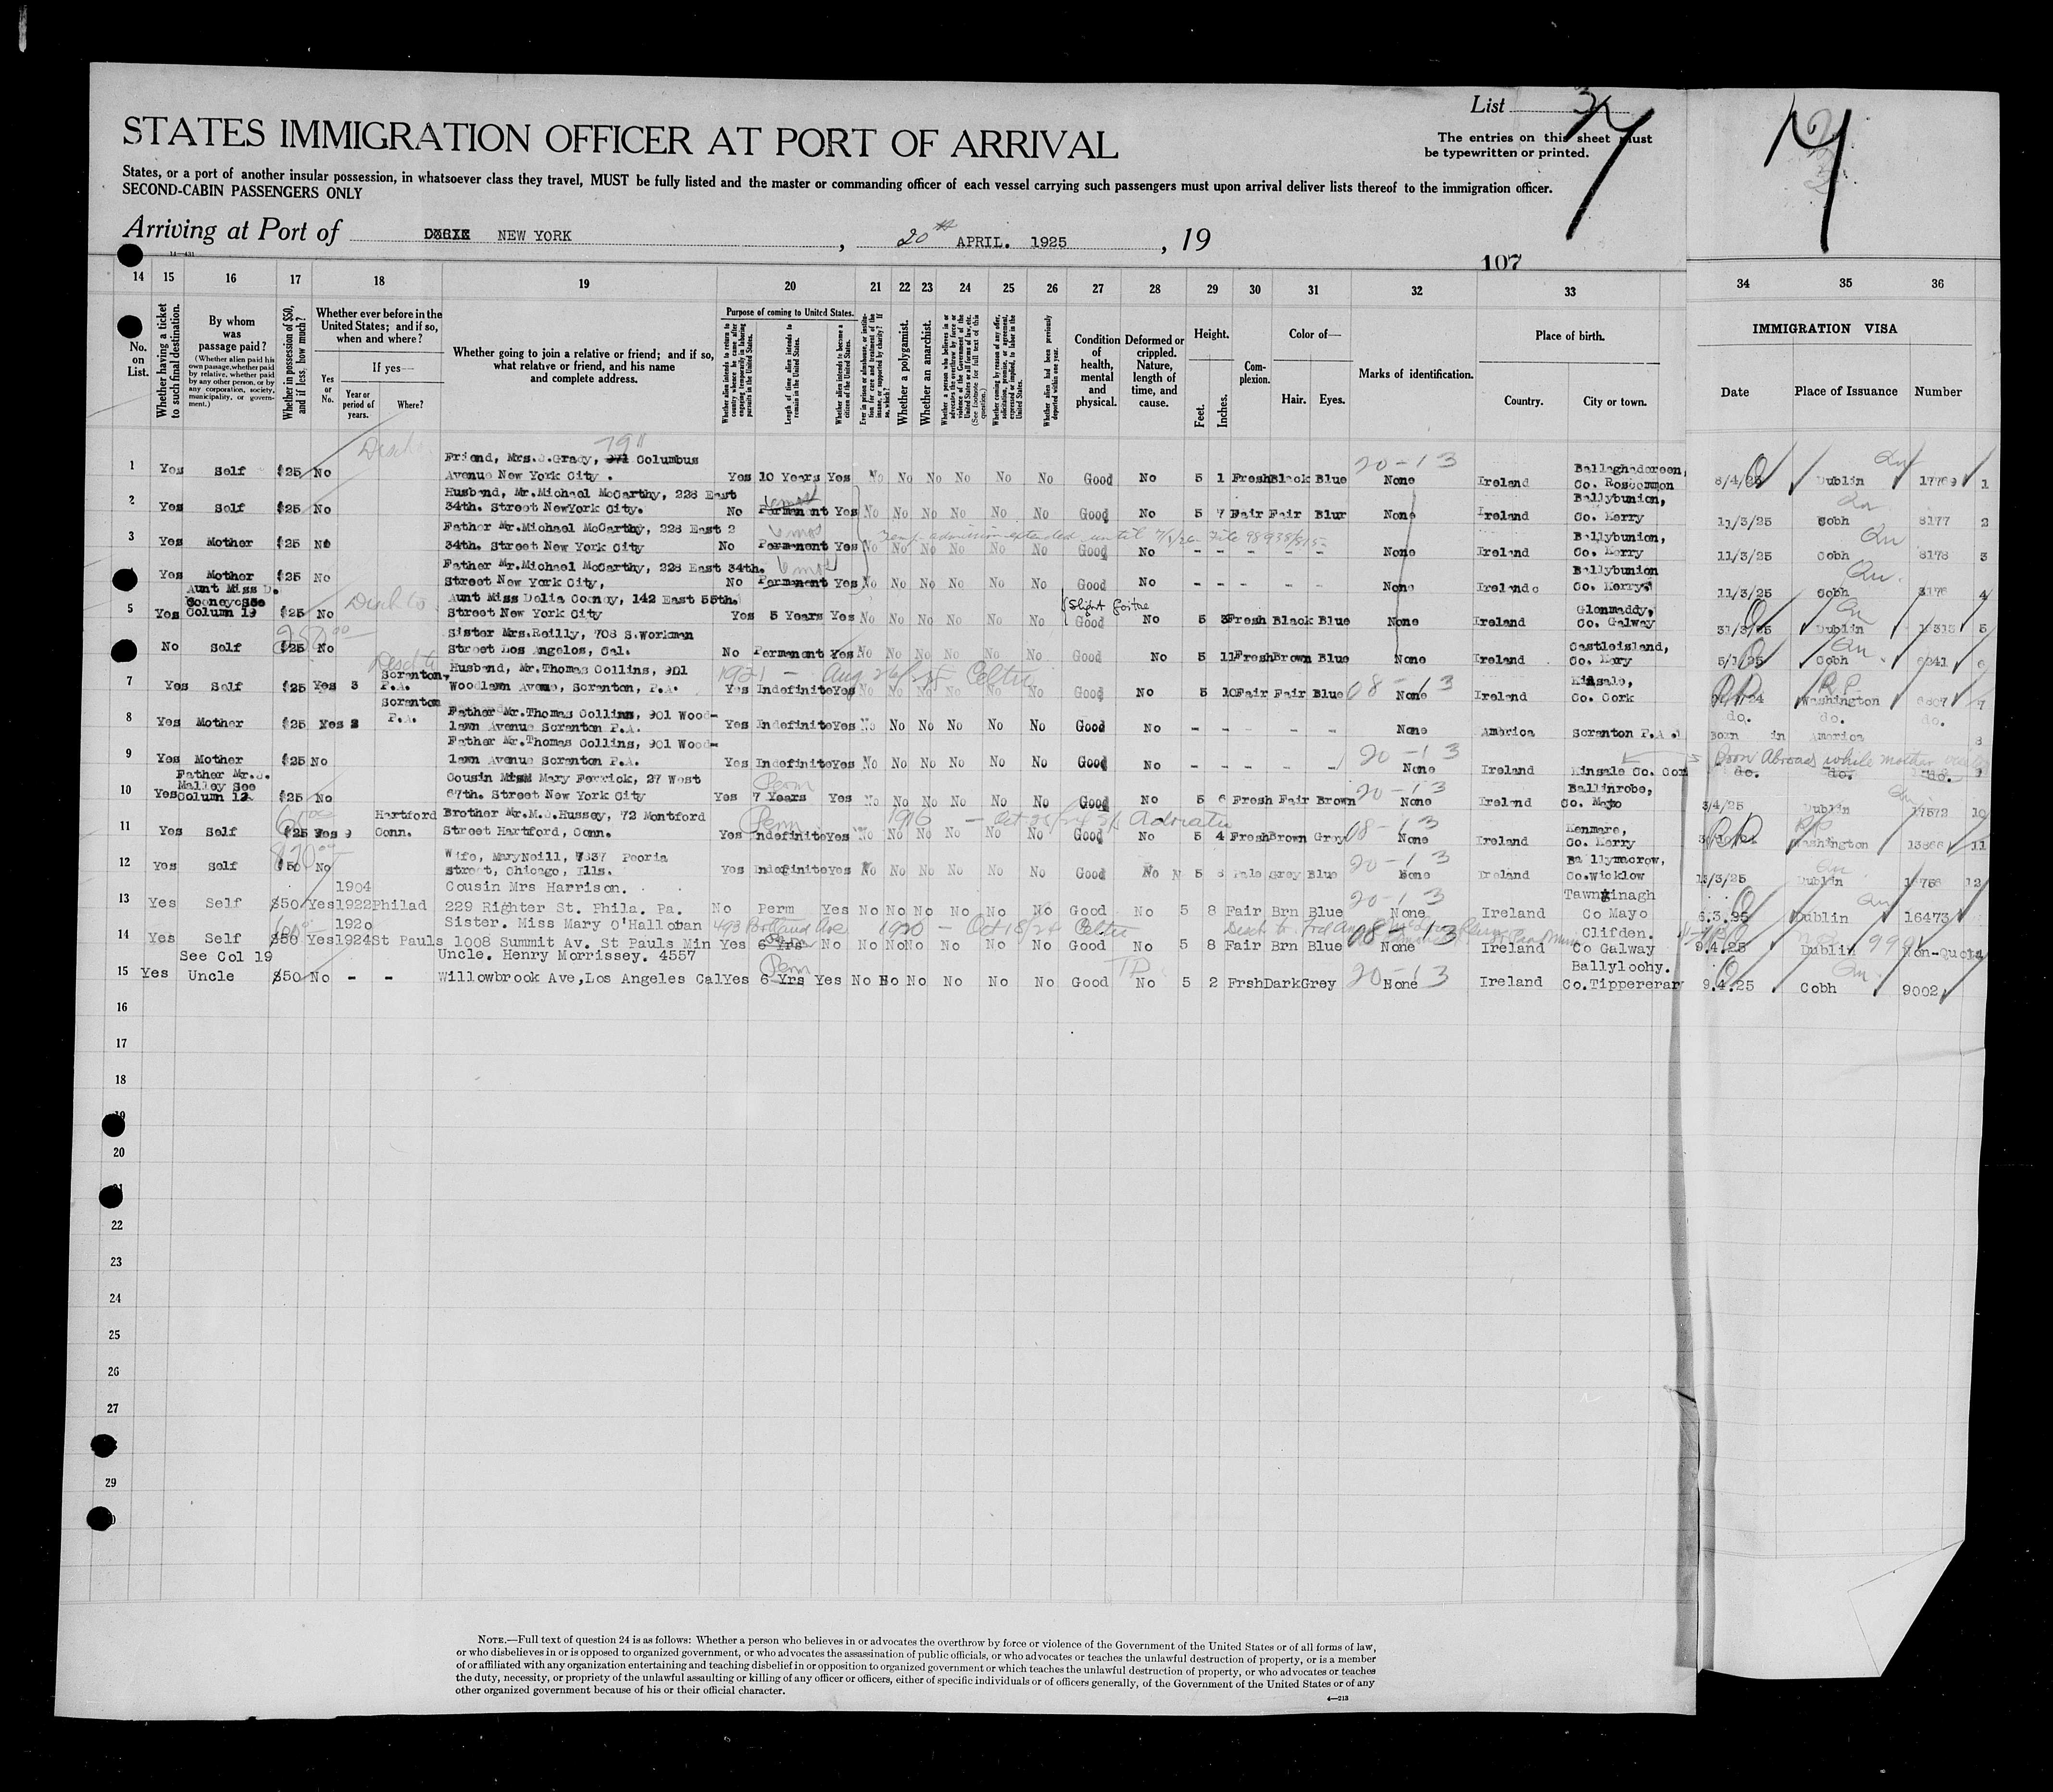 List
STATES IMMIGRATION OFFICER AT PORT OF ARRIVAL
The entries on this sheet must
be typewritten or printed.
States, or a port of another insular possession, in whatsoever class they travel, MUST be fully listed and the master or commanding officer of each vessel carrying such passengers must upon arrival deliver lists thereof to the immigration officer.
SECOND-CABIN PASSENGERS ONLY
Arriving at Port of NEW YORK, 20th APRIL. 1925, 19
14—431
107
14 15 16 17 18 19 20 21 22 23 24 25 26 27 28 29 30 31 32 33 34 35 36
No. on List.
Whether having a ticket to such final destination.
By whom was passage paid?
(Whether alien paid his own passage, whether paid by relative, whether paid by any other person, or by any corporation, society, municipality, or government.)
Whether in possession of $50, and if less, how much?
Whether ever before in the United States; and if so, when and where?
Yes or No.
If yes—
Year or period of years.
Where?
Whether going to join a relative or friend; and if so, what relative or friend, and his name and complete address.
Purpose of coming to United States.
Whether alien intends to return to country whence he came after engaging temporarily in laboring pursuits in the United States.
Length of time alien intends to remain in the United States.
Whether alien intends to become a citizen of the United States.
Ever in prison or almshouse, or institution for care and treatment of the insane, or supported by charity? If so, which?
Whether a polygamist.
Whether an anarchist.
Whether alien had been previously deported within one year.
Condition of health, mental and physical.
Deformed or crippled. Nature, length of time, and cause.
Height.
Feet.
Inches.
Complexion.
Color of—
Hair.
Eyes.
Marks of identification.
Place of birth.
Country.
City or town.
IMMIGRATION VISA
Date
Place of Issuance
Number
1 Yes Self $25 No Friend, Mrs. J. Grady, 971 790 Columbus
Avenue New York City. Yes 10 Years Yes No No No No No No Good No 5 1 Fresh Black Blue None 20-13 Ireland Ballaghadereen, Co. Roscommon Dublin 1
2 Yes Self $25 No Husband, Mr. Michael McCarthy, 228 East
34th. Street NewYork City. No Permanent 6 mos Yes No No No No No No Good No 5 7 Fair Fair Blur None Ireland Ballybunion, Co. Kerry 11/3/25 Cobh 8177 2
3 Yes Mother $25 No Father Mr. Michael McCarthy, 228 East 2
34th. Street New York City No Permanent 6 mos Yes No No No No No No Good No - - - - - None Ireland Ballybunion, Co. Kerry 11/3/25 Cobh 8178 3
Temp. admission extended until
Yes Mother $25 No Father Mr. Michael McCarthy, 228 East 34th.
Street New York City, No Permanent 6 mos Yes No No No No No No Good No - - - - - None Ireland Ballybunion Co. Kerry. 11/3/25 Cobh 4
5 Yes Aunt Miss D. Cooney See Column 19 $25 No Aunt Miss Delia Cooney, 142 East 55th.
Street New York City Yes 5 Years Yes No No No No No No Slight Goitre Good No 5 3 Fresh Black Blue None Ireland Glenmaddy, Co. Galway 31/3/25 Dublin 5
No Self $25 No Sister Mrs. Reilly, 708 S. Workman
Street Los Angelos, Cal. No Permanent Yes No No No No No No Good No 5 11 Fresh Brown Blue None Ireland Castleisland, Co. Kery 5/1/25 Cobh 6
7 Yes Self $25 Yes 3 Scranton, P.A. Husband, Mr. Thomas Collins, 901
Woodlawn Avenue, Scranton, P.A. Yes Indefinite Yes No No No No No No Good No 5 10 Fair Fair Blue None 08-13 Ireland Kinsale, Co. Cork Washington 7
8 Yes Mother $25 Yes 2 Scranton P.A. Father Mr. Thomas Collins, 901 Wood-
lawn Avenue Scranton P.A. Yes Indefinite Yes No No No No No No Good No - - - - - None America Scranton P.A. do. do. do. Born in America 8
9 Yes Mother $25 No Father Mr. Thomas Collins, 901 Wood-
lawn Avenue Scranton P.A. Yes Indefinite Yes No No No No No No Good No - - - - - None 20-13 Ireland Kinsale Co. Cor Born Abroad while mother do. do. do. 9
10 Yes Father Mr. J. Malley See Column 12 $25 No Cousin Miss Mary Ferrick, 27 West
67th. Street New York City Yes 7 Years Perm Yes No No No No No No Good No 5 6 Fresh Fair Brown None 20-13 Ireland Ballinrobe, Co. Mayo 3/4/25 Dublin 17572 10
11 Yes Self $25 Yes 9 Hartford Conn. Brother Mr. M.J. Hussey, 72 Montford
Street Hartford, Conn. Yes Indefinite Perm Yes No No No No No No Good No 5 4 Fresh Brown Grey None 08-13 Ireland Kenmare, Co. Kerry Washington 11
12 Yes Self $50 No Wife, Mary Neill, 7337 Peoria
street, Chicago, Ills. Yes Indefinite Yes No No No No No No Good No 5 8 Pale Grey Blue None 20-13 Ireland Ballymacrow, Co. Wicklow Dublin 12
13 Yes Self $50 Yes 1904 1922 Philad Cousin Mrs Harrison.
229 Righter St. Phila. Pa. No Perm Yes No No No No No No Good No 5 8 Fair Brn Blue None 20-13 Ireland Tawnginagh Co Mayo 6.3.25 Dublin 16473
14 Yes Self $50 Yes 1920 1924 St Pauls Sister. Miss Mary O'Halloban 493 Portland Ave 1920 - Oct 18/24 Celtic
1008 Summit Av. St Pauls Min Yes 6 Yrs No No No No No No No Good No 5 8 Fair Brn Blue None 08-13 Ireland Clifden. Co Galway 9.4.25 Dublin Non-Quota
15 Yes See Col 19 Uncle $50 No - - Uncle. Henry Morrissey. 4557
Willowbrook Ave, Los Angeles Cal Yes 6 Yrs Perm Yes No No No No No No Good No 5 2 Frsh Dark Grey None 20-13 Ireland Ballyloohy. Co. Tippererary 9.4.25 Cobh 9002
16
17
18
19
20
21
22
23
24
25
26
27
29
NOTE.—Full text of question 24 is as follows: Whether a person who believes in or advocates the overthrow by force or violence of the Government of the United States or of all forms of law,
or who disbelieves in or is opposed to organized government, or who advocates the assassination of public officials, or who advocates or teaches the unlawful destruction of property, or is a member
of or affiliated with any organization entertaining and teaching disbelief in or opposition to organized government or which teaches the unlawful destruction of property, or who advocates or teaches
the duty, necessity, or propriety of the unlawful assaulting or killing of any officer or officers, either of specific individuals or of officers generally, of the Government of the United States or of any
other organized government because of his or their official character.
4—213